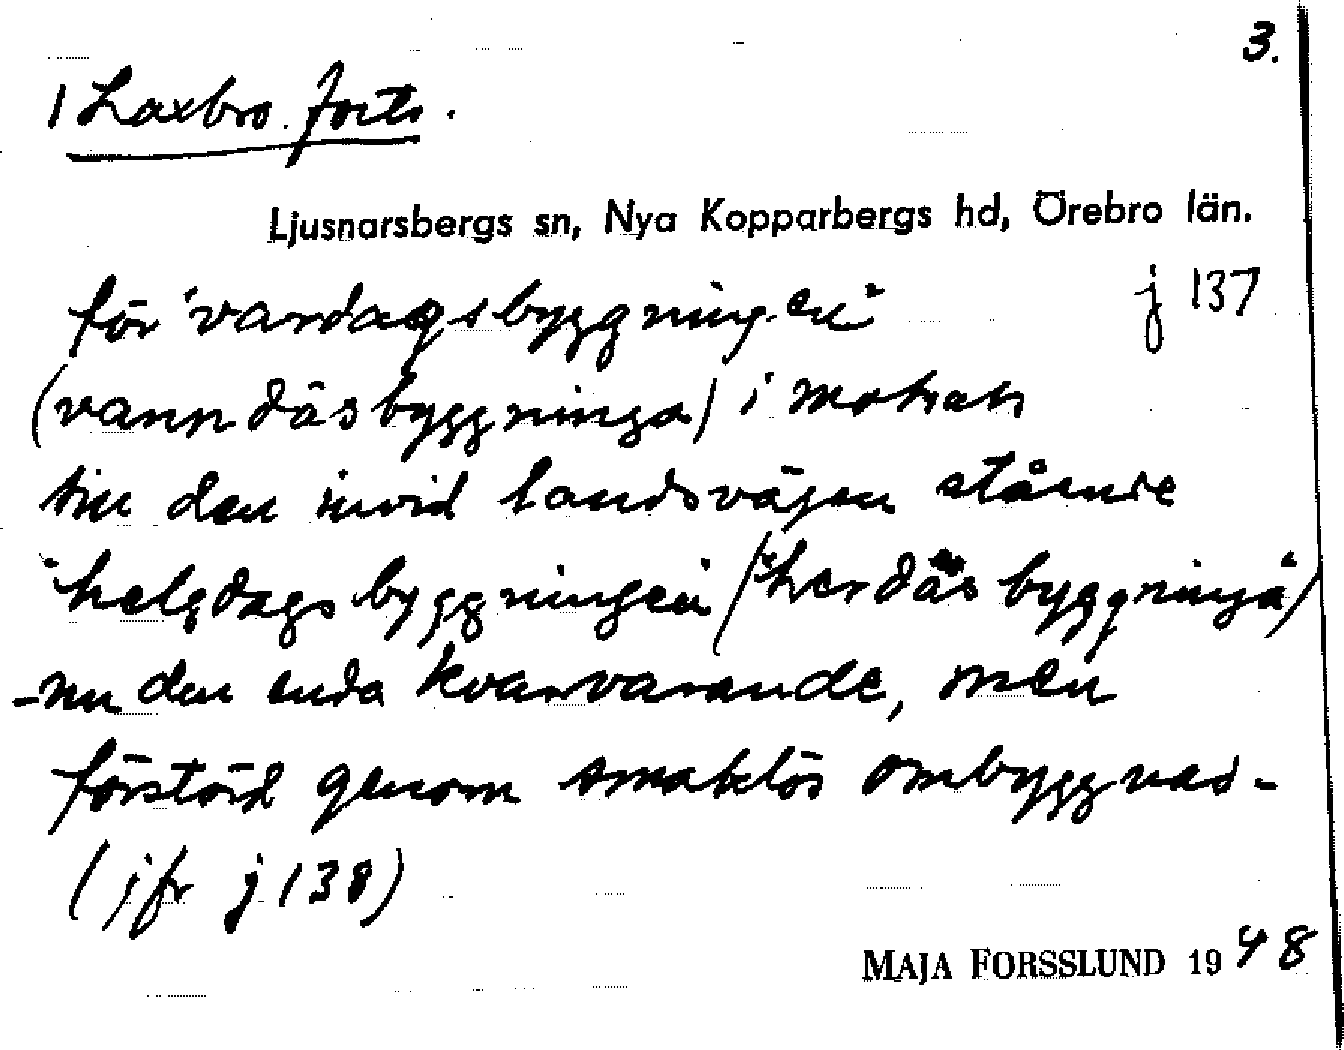 3.
1 Laxbro. forts.
Ljusnarsbergs sn, Nya Kopparbergs hd, Örebro län.
för "vardagsbyggningen" j 137
(vann däsbyggninga) i motsats
till den invid landsvägen stående
"helgdagsbyggningen" ("herdäs byggninga")
- nu den enda kvarvarande, men
förstörd genom smaklös ombyggnad -
(jfr j 138)
MAJA FORSSLUND 1948